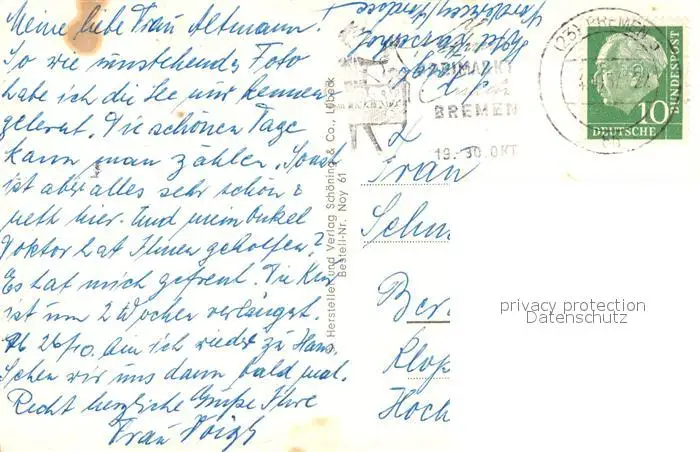 Meine liebe Frau Altmann.
So wie umstehendes Foto
habe ich die See nur kennen-
gelernt. Die schönen Tage
kann man zählen. Sonst
ist aber alles sehr schön &
nett hier. Und mein Onkel
Doktor hat Ihnen geholfen?
Es hat mich gefreut. Die Kur
ist um 2 Wochen verlängert.
Ab 26/10. bin ich wieder zu Haus.
Sehen wir uns dann bald mal.
Recht herzliche Grüße Ihre
Frau Voigt
Hersteller und Verlag Schöning & Co., Lübeck
Bestell-Nr. Noy 61
BREMEN
19.-30. OKT.
(23) BREMEN 5
10
DEUTSCHE
BUNDESPOST
Frau
Schm
Ber
Klop
Hoch
privacy protection
Datenschutz